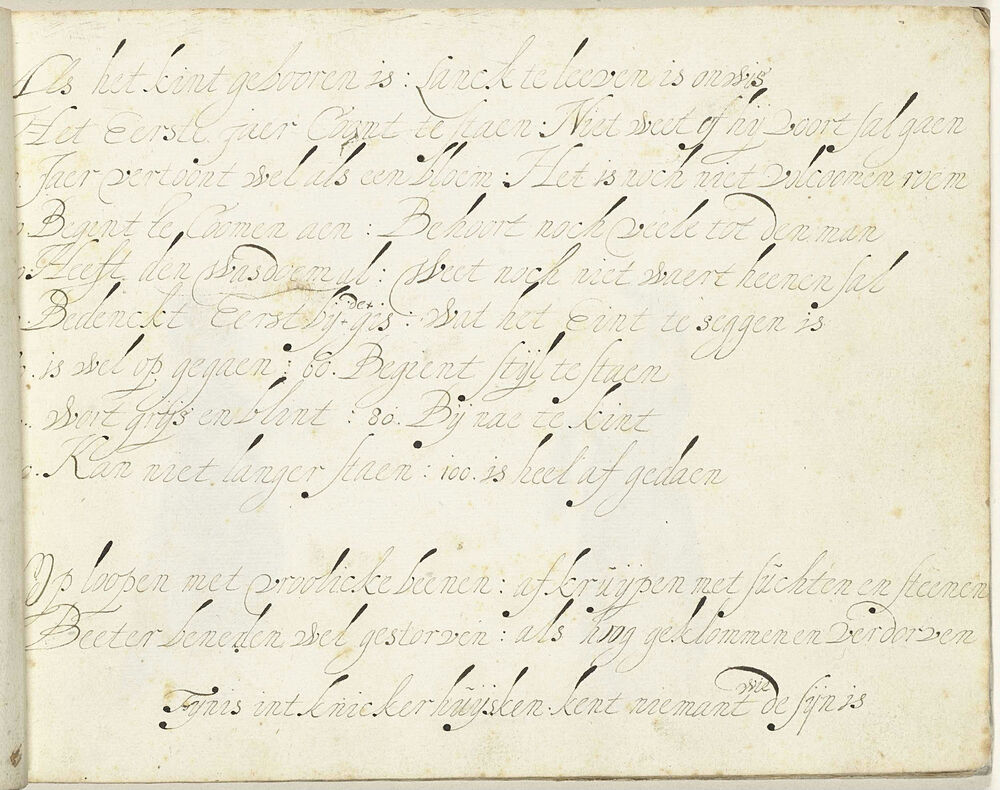 Als het kint gebooren is : Lanck te leeven is onwis
Het Eerste Jaer Comt te staen : Niet weet of hij Voort sal gaen
Jaer vertoont wel als een bloem : Het is noch niet Volcoomen roem
Begint te Coomen aen : Behoort noch Veele tot den man
Heeft den Wasdoem al : Weet noch niet waert heenen sal
Bedenckt Eerst bij + gis : Wat het Eint te seggen is
de+
. is wel op gegaen : 60. Begient stijl te staen
. Wort grijs en blint : 80. Bij nae te kint
0. Kan niet langer staen : 100. is heel af gedaen
Op loopen met vroolicke beenen : af kruijpen met suchten en steenen
Beeter beneden wel gestorven : als hoog geklommen en Verdorven
Fynis int knickerhuijsken kent niemant wie de sijn is